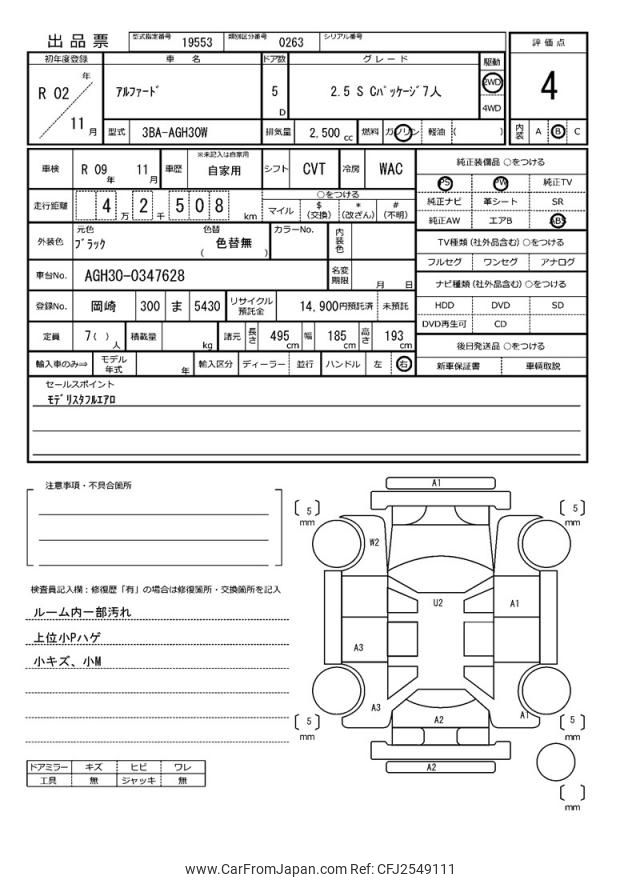 出品票
型式指定番号 19553 類別区分番号 0263 シリアル番号
評価点
4
内装 A B C
初年度登録 車名 ドア数 グレード 駆動
R 02 年 11 月
アルファード
5 D
2.5 S Cパッケージ 7人
2WD
4WD
型式 3BA-AGH30W 排気量 2,500 cc 燃料 ガソリン 軽油 ( )
車検 R 09 年 11 月 車歴 ※未記入は自家用 自家用 シフト CVT 冷房 WAC
走行距離 4 万 2 千 5 0 8 km
○をつける
マイル $ (交換) * (改ざん) # (不明)
外装色 元色 ブラック 色替 ( 色替無 ) カラーNo. 内装色
車台No. AGH30-0347628 名変期限 月 日
登録No. 岡崎 300 ま 5430 リサイクル預託金 14,900円預託済 未預託
定員 7( ) 人 積載量 kg 諸元 長さ 495 cm 幅 185 cm 高さ 193 cm
輸入車のみ⇒ モデル年式 年 輸入区分 ディーラー 並行 ハンドル 左 右
純正装備品 ○をつける
PS PW 純正TV
純正ナビ 革シート SR
純正AW エアB ABS
TV種類 (社外品含む) ○をつける
フルセグ ワンセグ アナログ
ナビ種類 (社外品含む) ○をつける
HDD DVD SD
DVD再生可 CD
後日発送品 ○をつける
新車保証書 車輌取説
セールスポイント
モデリスタフルエアロ
注意事項・不具合箇所
検査員記入欄：修復歴「有」の場合は修復箇所・交換箇所を記入
ルーム内一部汚れ
上位小Pハゲ
小キズ、小M
ドアミラー キズ ヒビ ワレ
工具 無 ジャッキ 無
A1
5 mm
5 mm
W2
U2
A1
A3
A3
A2
A1
5 mm
5 mm
A2
mm
www.CarFromJapan.com Ref: CFJ2549111